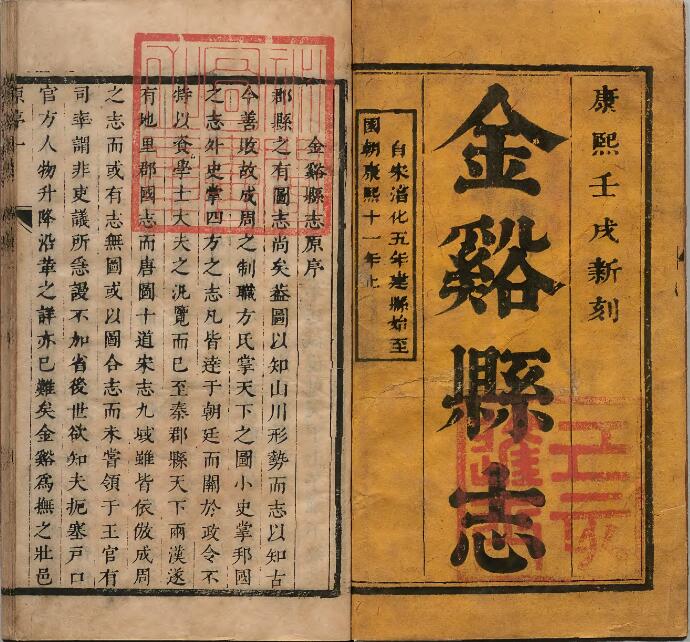 康熙壬戌新刻
金谿縣志
自宋淳化五年建縣始至
國朝康熙十一年止
金谿縣志原序
郡縣之有圖志尚矣葢圖以知山川形勢而志以知古
今善敗故成周之制職方氏掌天下之圖小史掌邦國
之志外史掌四方之志凡皆達于朝廷而關於政令不
特以資學士大夫之汎覽而已至秦郡縣天下兩漢遂
有地里郡國志而唐圖十道宋志九域雖皆依倣成周
之志而或有志無圖或以圖合志而未嘗領于王官有
司率謂非吏議所急謾不加省後世欲知夫扼塞戸口
官方人物升降沿革之詳亦已難矣金谿爲撫之壯邑
原序一